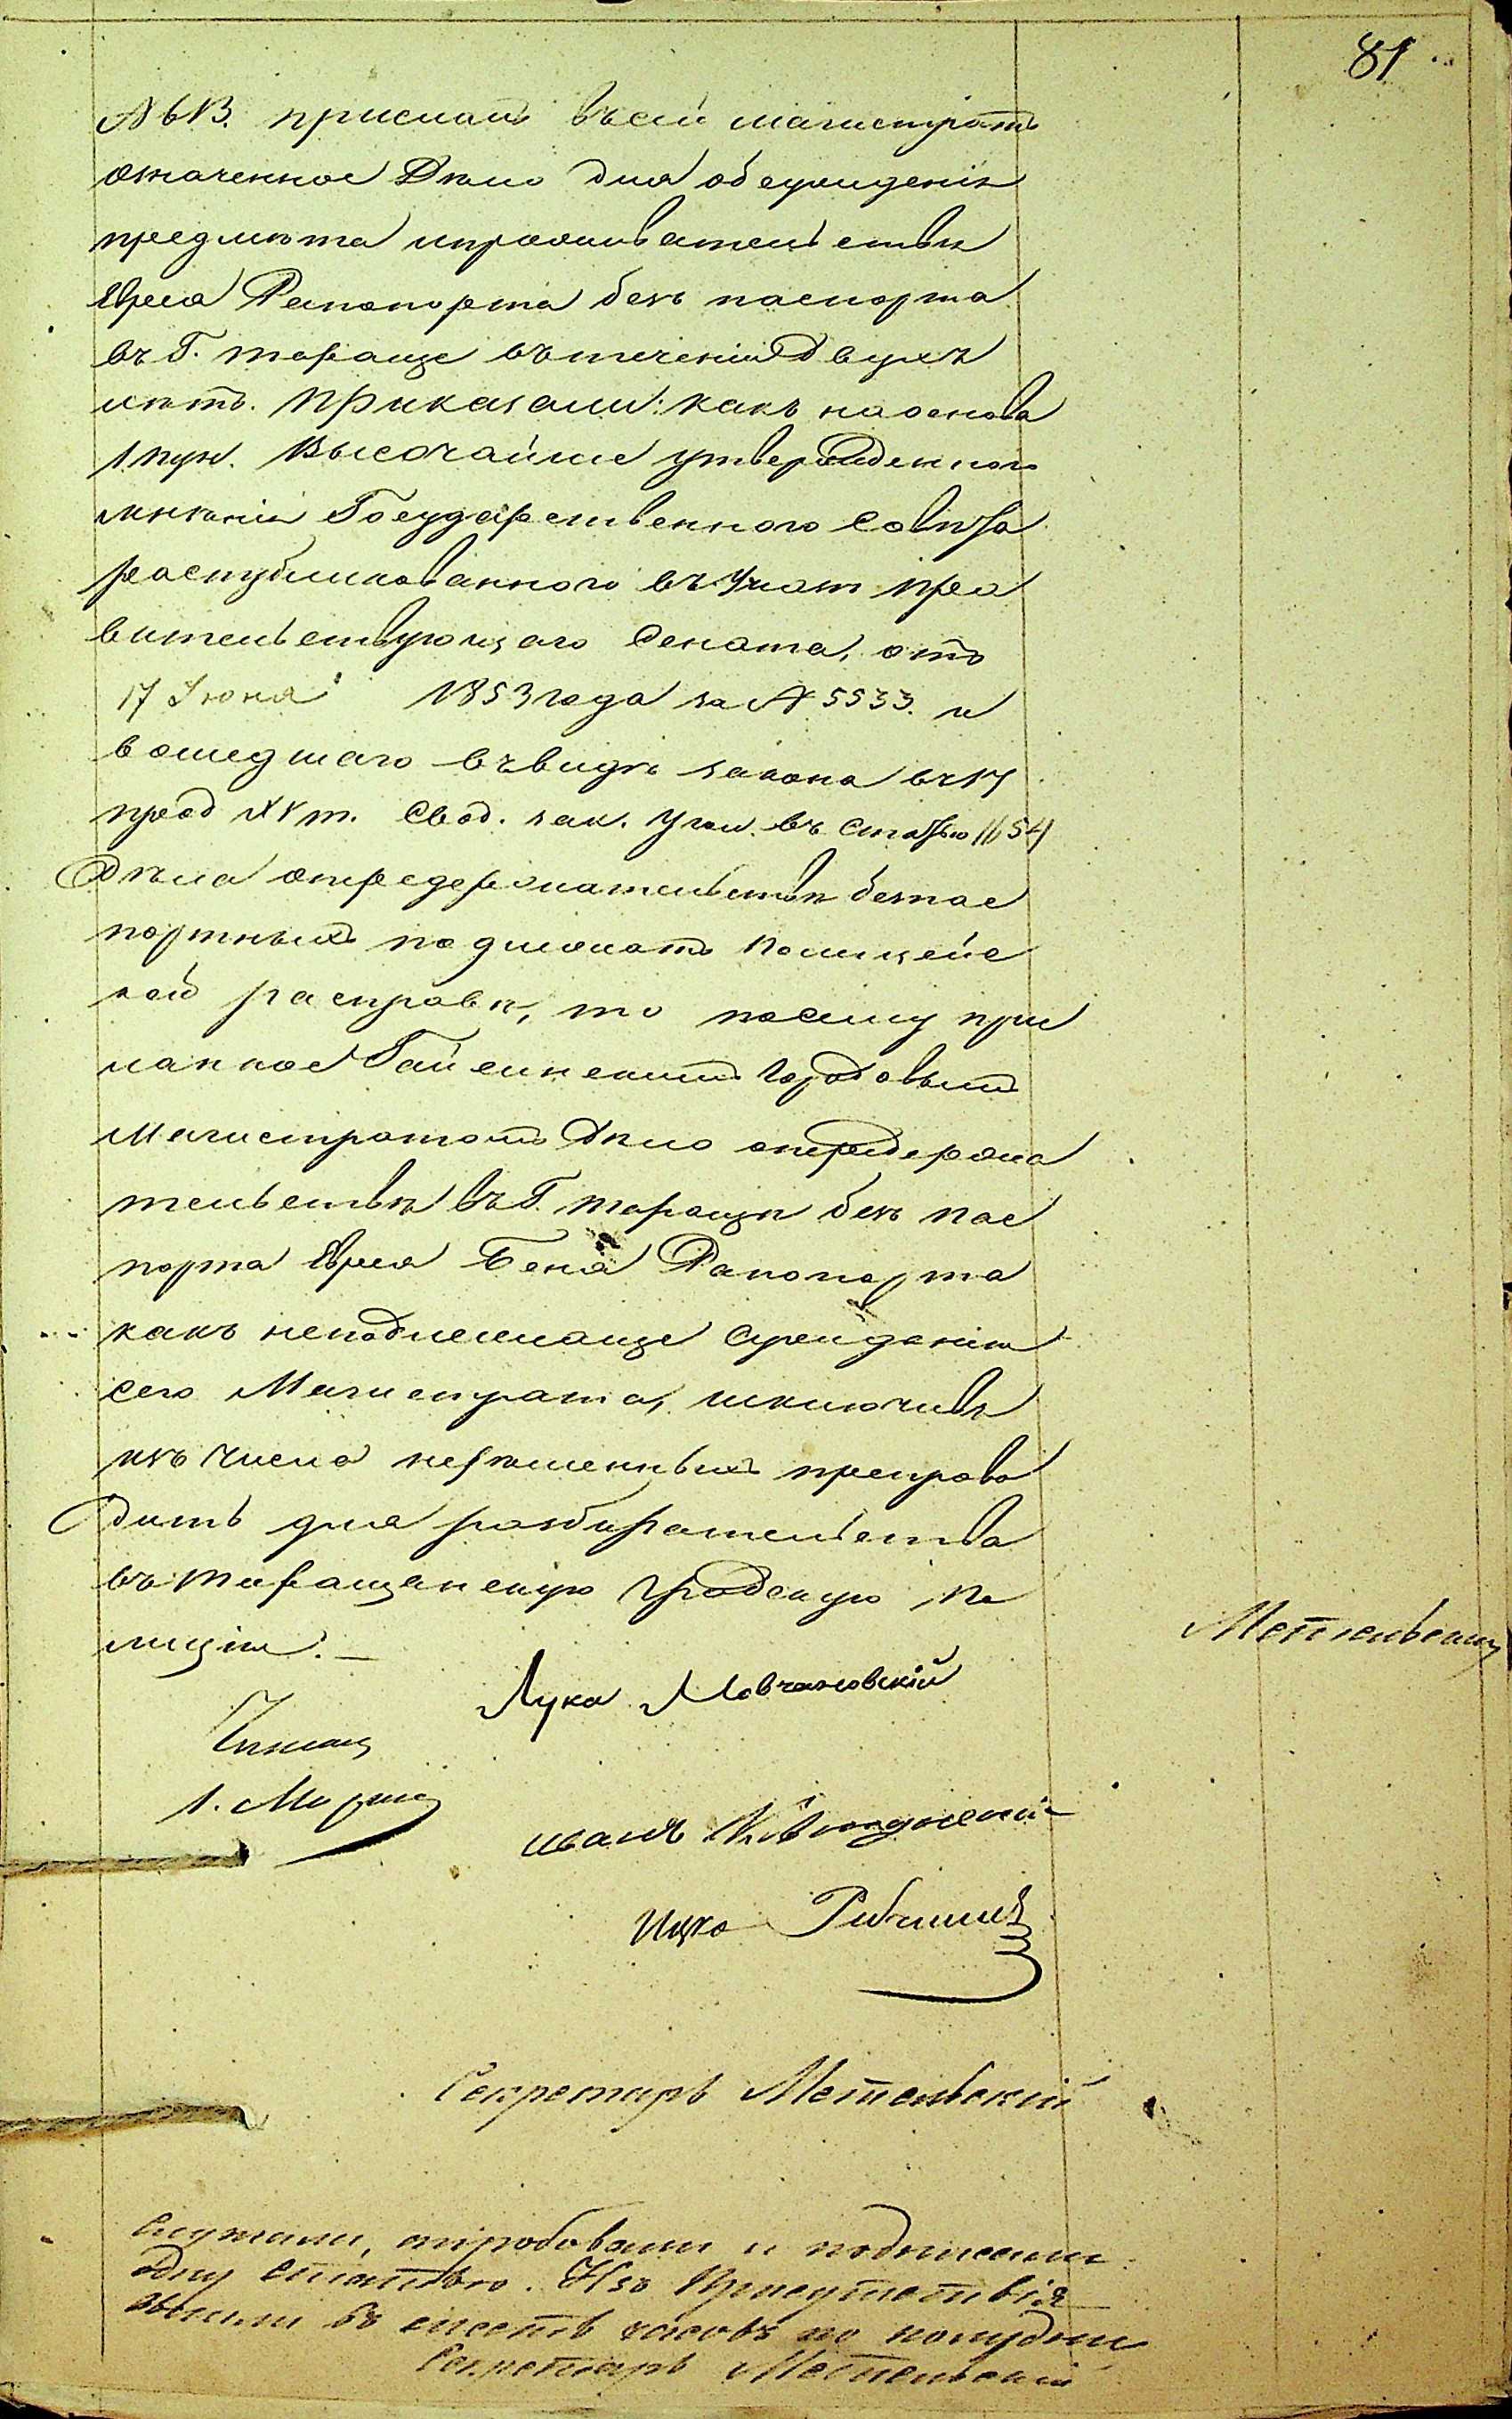 81
№ 613. прислалъ въ сей магистратъ
означенное Дѣло для обсужденія
предмѣта проживательствѣ
Еврея Рапопорта безъ паспорта
въ Г. Тараще въ теченіи двухъ
лѣтъ. Приказали: какъ на основа
1 пун. Высочайше утвержденного
мнѣнія Государственного Совѣта
распубликованного въ Указѣ Пра
вительствующаго Сената, отъ
17 Іюня 1853 года за № 5533. и
вошедшаго въ видѣ закона въ 17
прод. XV т. Свод. зак. Угол. въ статью 1654
Дѣла о передержательствѣ безпас
портныхъ подлежатъ Полицейс
кой расправѣ, то посему при
сланное Гайсинскимъ Городовымъ
Магистратомъ Дѣло о передержа
тельствѣ въ Г. Таращѣ безъ пас
порта Еврея Беня Рапопорта
какъ неподлежаще сужденію
сего Магистрата, исключивъ
изъ числа нерѣшенныхъ препрово
дить для разбирательства
въ Таращанскую Градскую По
лицію. —
Метельскій
Лука Мовчановскій
Иванъ
Ицко
Секретарь Метельскій
Слушали, апробовали и подписали
одну статью. Изъ Присутствія
вышли въ шесть часовъ по полудни
Секретарь Метельскій